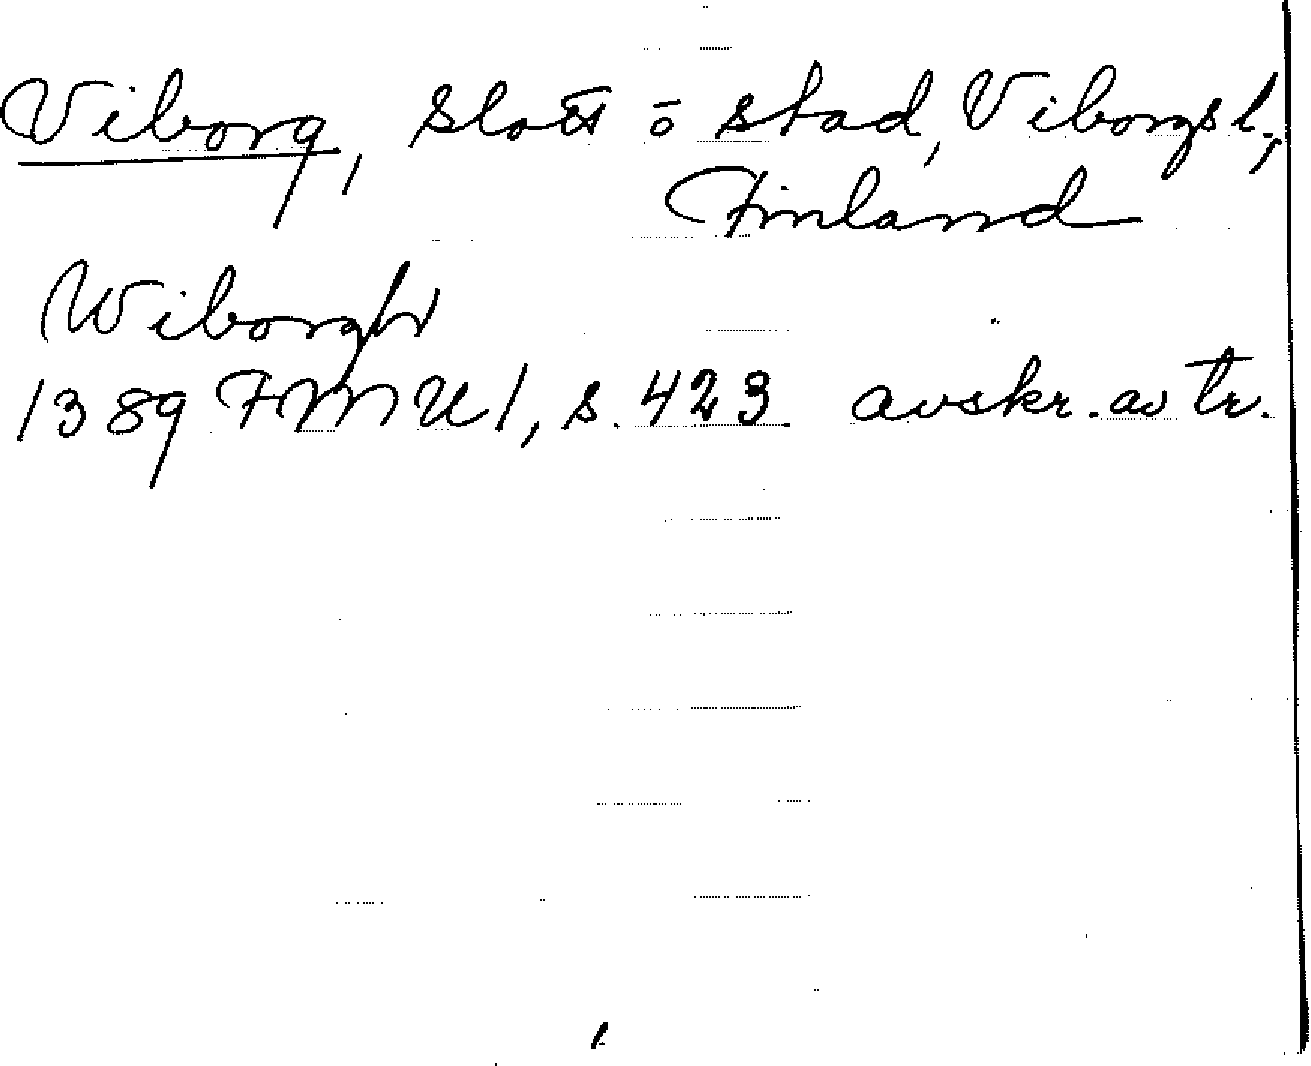 Viborg, slott o stad, Viborgs l.,
Finland
Wiborgh
1389 FMU 1, s. 423 avskr. av tr.